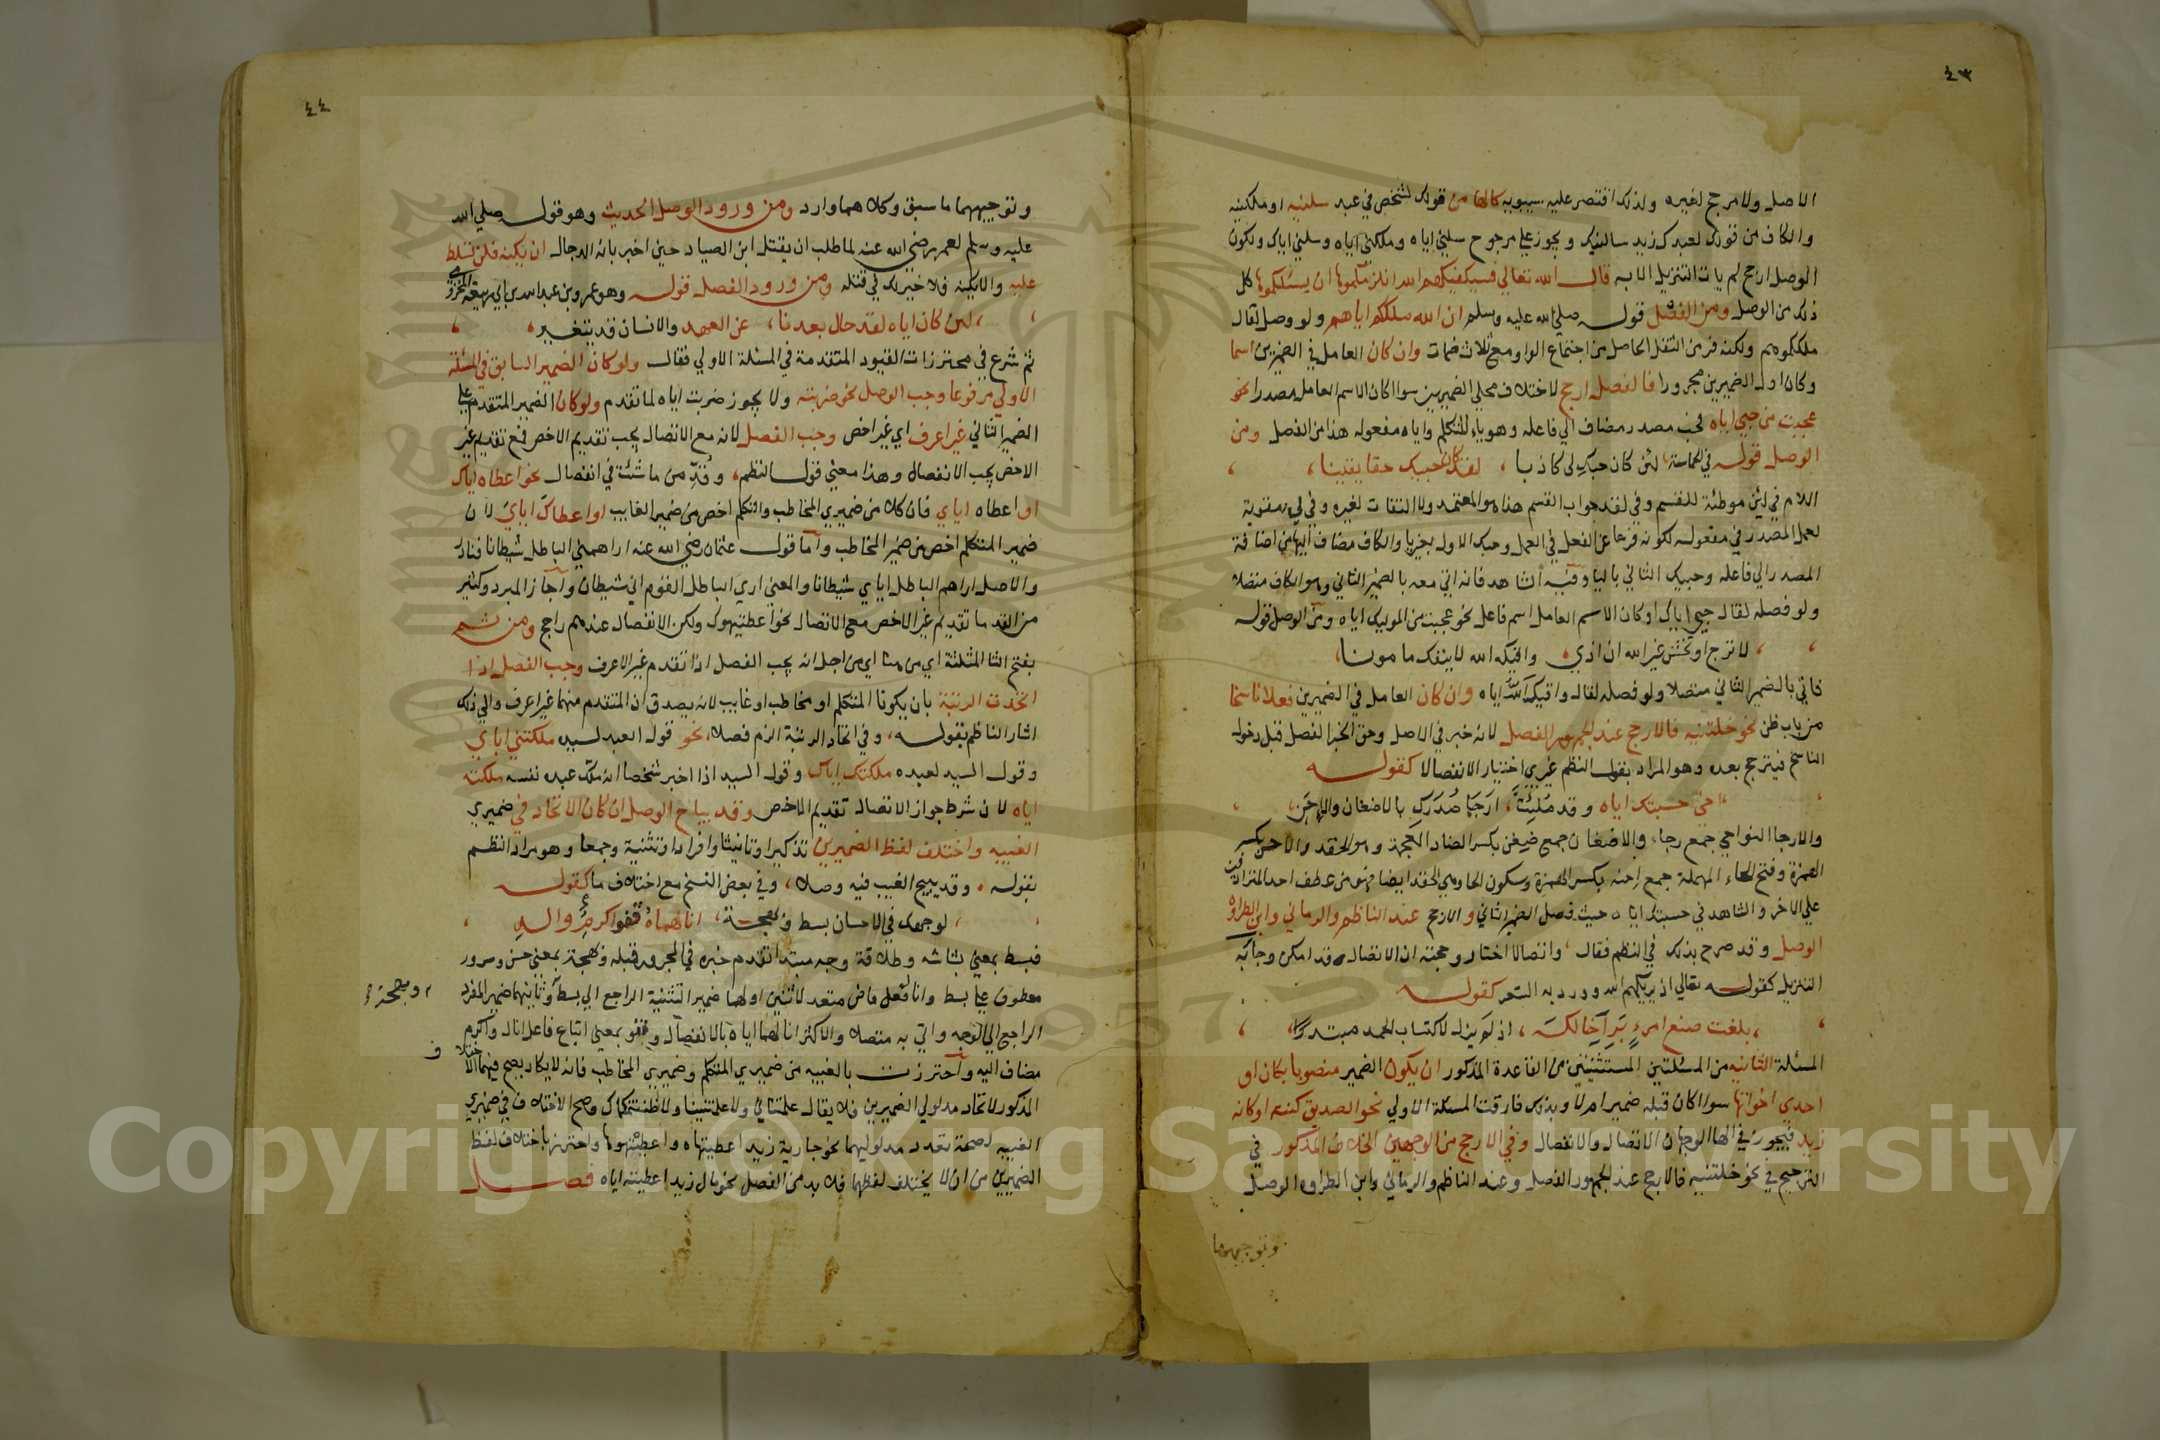 ٤٣
الاصل ولا مرجح لغيره ولذلك اقتصر عليه سيبويه كالها من قولك لشخص في عبد سلنيه او ملكنيه
والكاف من قولك لعبدك زيد سالنيك ويجوز على مرجوح سلني اياه وملكني اياه وسلني اياك ولكون
الوصل ارجح لم يات التنزيل الا به قال الله تعالى فسيكفيكهم الله انلزمكموها ان يسئلكموها كل
ذلك من الوصل ومن الفصل قوله صلى الله عليه وسلم ان الله ملككم اياهم ولو وصل لقال
ملككموهم ولكنه فر من الثقل الحاصل من اجتماع الواو مع ثلاث ضمات وان كان العامل في الضميرين اسما
وكان اول الضميرين مجرورا فالفصل ارجح لاختلاف محلي الضميرين سوا كان الاسم العامل مصدرا نحو
عجبت من حبي اياه فحب مصدر مضاف الى فاعله وهو ياء المتكلم واياه مفعوله هذا من الفصل ومن
الوصل قوله في الحماسة لئن كان حبك لي كاذبا ، لقد كان حبيك حقا يقينا ،
اللام في لئن موطئة للقسم وفي لقد جواب القسم هذا هو المعتمد ولا التفات لغيره وفي لي مقوية
لعمل المصدر في مفعوله لكونه فرعا عن الفعل في العمل وحبك الاول بغير يا والكاف مضاف اليها من اضافة
المصدر الى فاعله وحبيك الثاني باليا وفيه الشاهد فانه اتى معه بالضمير الثاني وهو الكاف متصلا
ولو فصله لقال حبي اياك او كان الاسم العامل اسم فاعل نحو عجبت من الموليك اياه ومن الوصل قوله
، لا ترج او تخش غير الله ان اذى ، واقيكه الله لا ينفك مامونا ،
فاتى بالضمير الثاني متصلا ولو فصله لقال واقيك الله اياه وان كان العامل في الضميرين فعلا ناسخا
من باب ظن نحو خلتنيه فالارجح عند الجمهور الفصل لانه خبر في الاصل وحق الخبر الفصل قبل دخول
الناسخ فيترجح بعده وهو المراد بقول النظم غيري اختيار الانفصالا كقوله
، اخي حسبتك اياه وقد ملئت ، ارجاء صدرك بالاضغان والاحن ،
والارجا النواحي جمع رجا، والاضغان جمع ضغن بكسر الضاد المعجمة وهو الحقد والاحن بكسر
الهمزة وفتح الحاء المهملة جمع احنة بكسر الهمزة وسكون الحا وهي الحقد ايضا فهو من عطف احد المترادفين
على الاخر والشاهد في حسبتك اياه حيث فصل الضمير الثاني والارجح عند الناظم والرماني وابن الطراوة
الوصل وقد صرح بذلك في النظم فقال ، واتصالا اختار وحجته ان الاتصال قد امكن وجا به
التنزيل كقوله تعالى اذ يريكهم الله وورد به الشعر كقوله
، بلغت صنع امرء بر اخالكه ، اذ لم يزل لاكتساب الحمد مبتدرا ،
المسئلة الثانيه من المسئلتين المستثنيتين من القاعدة المذكور ان يكون الضمير منصوبا بكان او
احدى اخواتها سوا كان قبله ضمير ام لا وبذلك فارقت المسئلة الاولى نحو الصديق كنته او كانه
زيد فيجوز في الها الوجهان الاتصال والانفصال وفي الارجح من الوجهين الخلاف المذكور في
الترجيح في نحو خلتنيه فالارجح عند الجمهور الفصل وعند الناظم والرماني وابن الطراوه الوصل
وتوجيههما
٤٤
وتوجيههما ما سبق وكلاهما وارد ومن ورود الوصل الحديث وهو قوله صلى الله
عليه وسلم لعمر رضي الله عنه لما طلب ان يقتل ابن الصياد حين اخبر بانه الدجال ان يكنه فلن تسلط
عليه والا يكنه فلا خير لك في قتله ومن ورود الفصل قوله وهو عمرو بن عبد الله بن ابي ربيعة المخزومي
، لئن كان اياه لقد حال بعدنا ، عن العهد والانسان قد يتغير ،
ثم شرع في محترزات القيود المتقدمة في المسئلة الاولى فقال ولو كان الضمير السابق في المسئلة
الاولى مرفوعا وجب الوصل نحو ضربته ولا يجوز ضربت اياه لما تقدم ولو كان الضمير المتقدم على
الضمير الثاني غير اعرف اي غير اخص وجب الفصل لانه مع الاتصال يجب تقديم الاخص فمع تقديم غير
الاخص يجب الانفصال وهذا معنى قول النظم، وقدمن ما شئت في انفصال نحو اعطاه اياك
او اعطاه اياي فان كلا من ضميري المخاطب والمتكلم اخص من ضمير الغايب او اعطاك اياي لان
ضمير المتكلم اخص من ضمير المخاطب واما قول عثمان رضي الله عنه اراهمني الباطل شيطانا فنادر
والاصل اراهم الباطل اياي شيطانا والمعنى ارى الباطل القوم اني شيطان واجاز المبرد وكثير
من القدما تقديم غير الاخص مع الاتصال نحو اعطيتهوك ولكن الانفصال عندهم راجح ومن ثم
بفتح الثا المثلثة اي من هنا اي من اجل انه يجب الفصل اذا تقدم غير الاعرف وجب الفصل اذا
اتحدت الرتبة بان يكونا لمتكلم او مخاطب او غايب لانه يصدق ان المتقدم منهما غير اعرف والى ذلك
اشار الناظم بقوله، وفي اتحاد الرتبة الزم فصلا، نحو قول العبد لسيده ملكتني اياي
وقول السيد لعبده ملكتك اياك وقول السيد اذا اخبر شخصا انه ملك عبده نفسه ملكته
اياه لان شرط جواز الاتصال تقديم الاخص وقد يباح الوصل ان كان الاتحاد في ضميري
الغيبه واختلف لفظ الضميرين تذكيرا وتانيثا وافرادا وتثنية وجمعا وهو مراد النظم
بقوله ، وقد يبيح الغيب فيه وصلا ، وفي بعض النسخ مع اختلاف ما كقوله
، لوجهك في الاحسان بسط وبهجة ، انالهماه قفو اكرم والد ،
فبسط بمعنى بشاشه وطلاقة وجه مبتدا تقدم خبره في المجرور قبله وبهجة بمعنى حسن وسرور
معطوف على بسط وانال فعل ماض متعد لاثنين اولهما ضمير التثنية الراجع الى بسط وثانيهما ضمير المفرد
وبهجة
الراجع الى الوجه واتى به متصلا والاكثر انالهما اياه بالانفصال وقفو بمعنى اتباع فاعل انال واكرم
مضاف اليه واحترزت بالغيبه من ضميري المتكلم وضميري المخاطب فانه لا يكاد يصح فيهما الاختلاف
المذكور لاتحاد مدلولي الضميرين فلا يقال علمتناني ولا علمتنينا ولا ظننتكماك وصح الاختلاف في ضميري
الغيبه لصحة تعدد مدلوليهما نحو جارية زيد اعطيتهاه واعطيتهوها واحترز باختلاف لفظ
الضميرين من ان لا يختلف لفظهما فلا بد من الفصل نحو مال زيد اعطيته اياه فصل
Copyright © King Saud University
1957